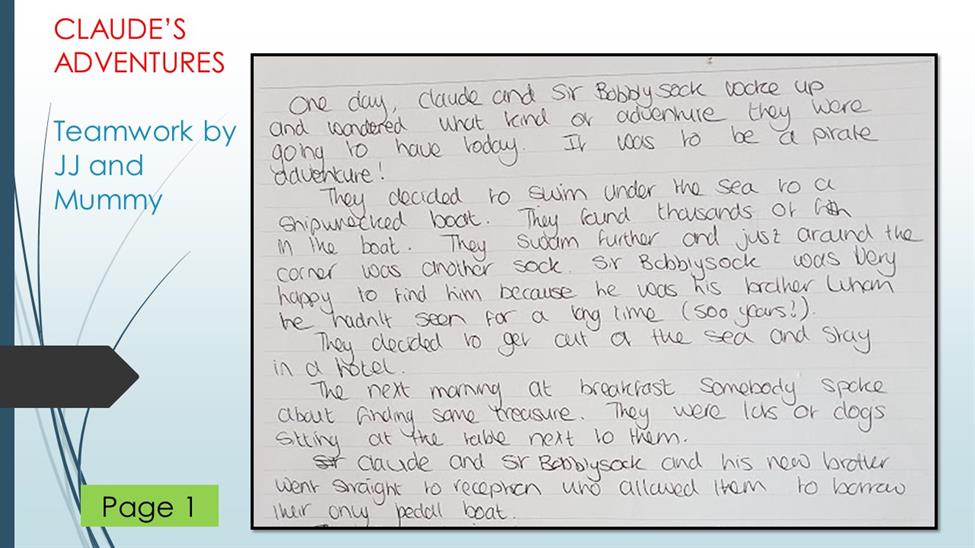 CLAUDE'S
ADVENTURES
Teamwork by
JJ and
Mummy
One day, Claude and Sir Bobblysock woke up
and wondered what kind of adventure they were
going to have today. It was to be a pirate
adventure!
They decided to swim under the sea to a
shipwrecked boat. They found thousands of fish
in the boat. They swam further and just around the
corner was another sock. Sir Bobblysock was very
happy to find him because he was his brother whom
he hadn't seen for a long time (500 years!).
They decided to get out of the sea and stay
in a hotel.
The next morning at breakfast somebody spoke
about finding some treasure. They were lots of dogs
sitting at the table next to them.
Claude and Sir Bobblysock and his new brother
went straight to reception who allowed them to borrow
their only pedall boat.
Page 1